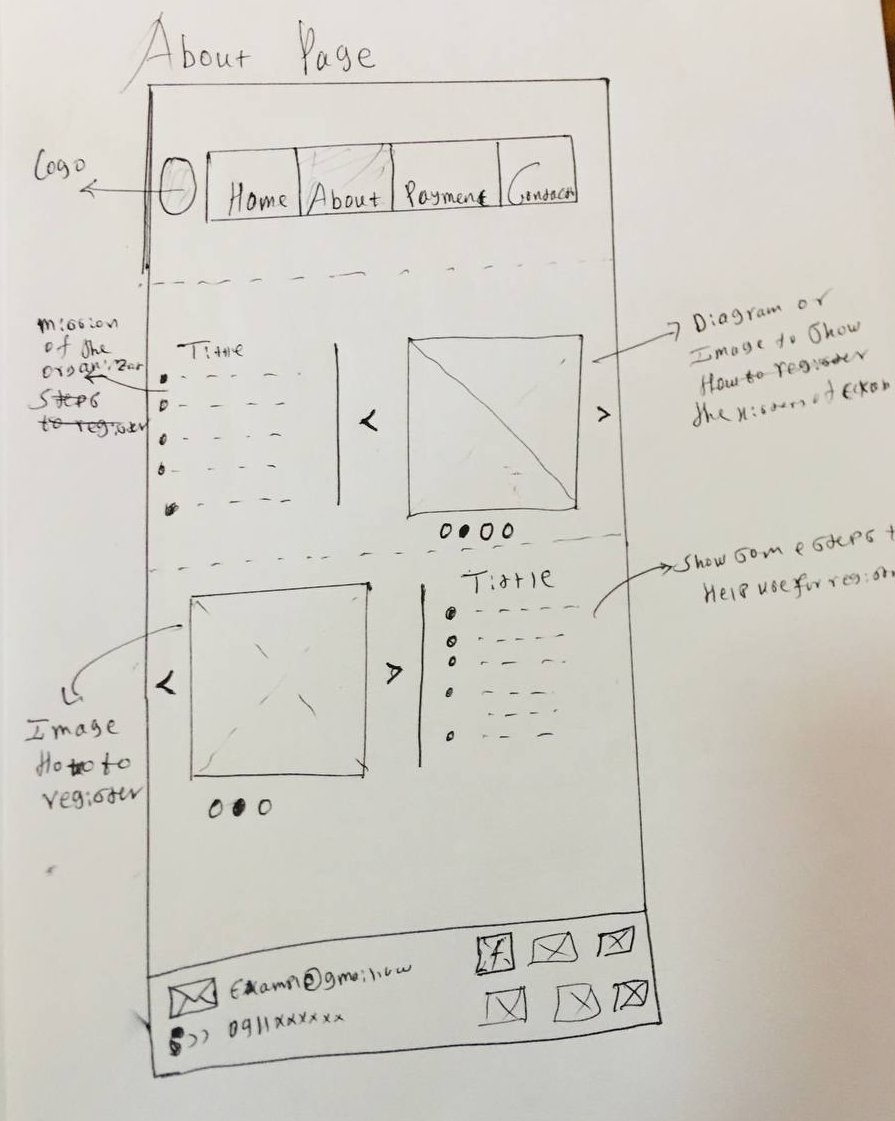 About Page
Logo
Home About Payment Contact
mission
of the
organizar
Steps
to register
Tittle
< >
Diagram or
Image to show
How to register
the
Tittle
Show some steps
Help use for
< >
Image
to
register
Example@gmail.com
f
0911xxxxxx